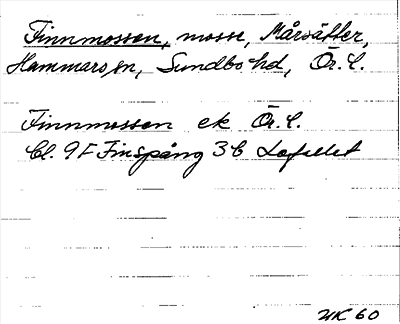 Finnmossen, mosse, Mårsätter,
Hammars sn, Sundbo hd, Ör. l.
Finnmossen ek Ör. l.
Bl. 9F Finspång 3b
HK 60